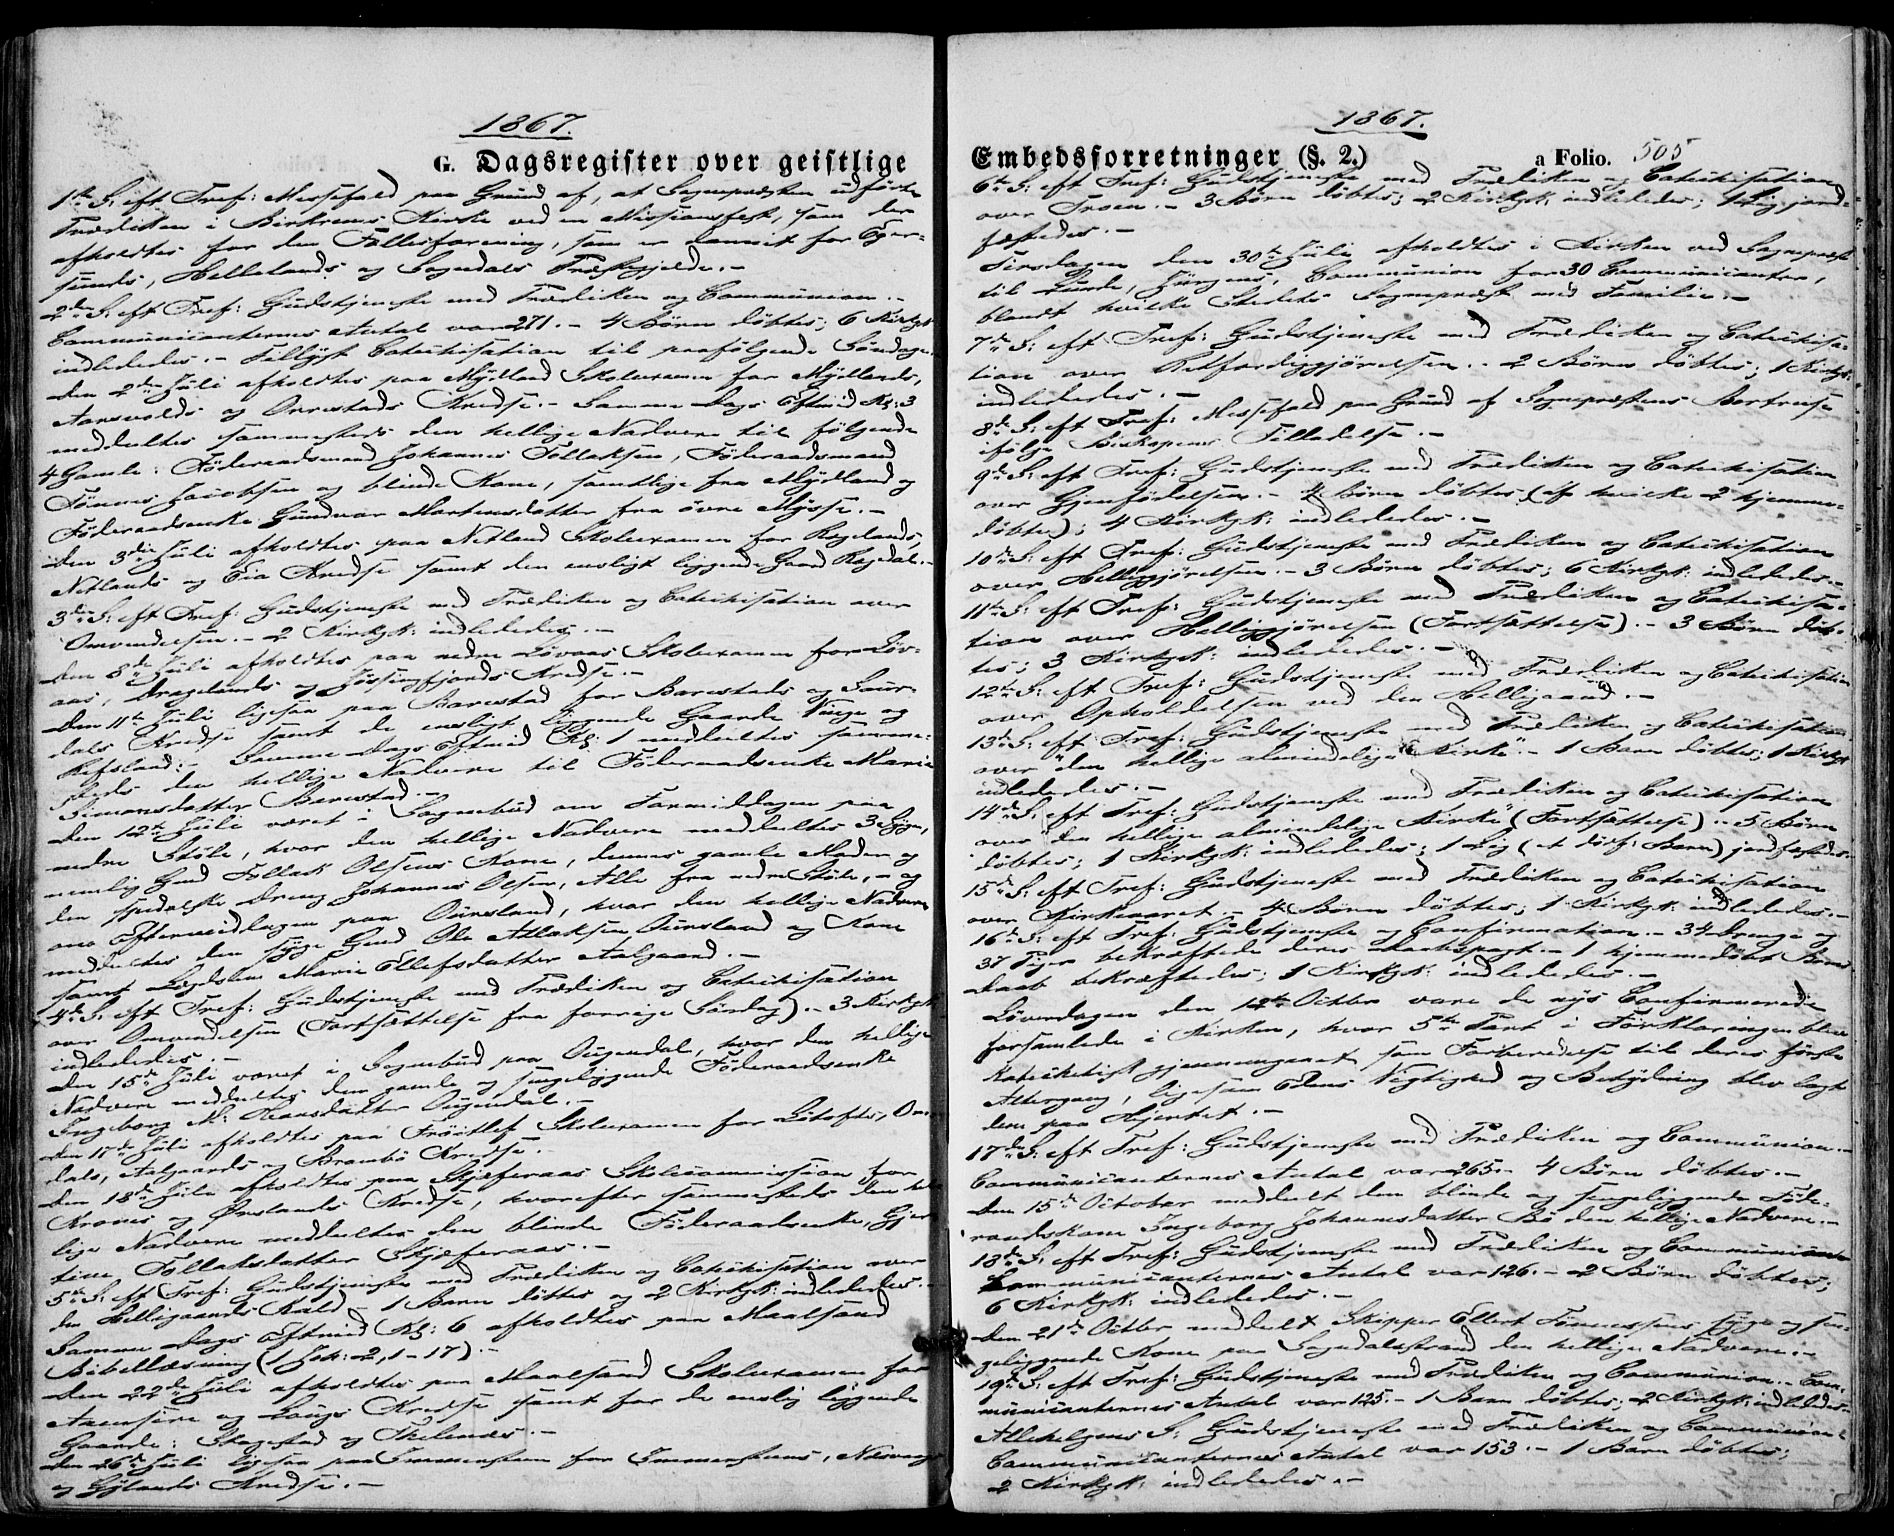 1867.
G. Dagsregister over geistlige
1ste S: eft Tref: Messefald paa Grund af, at Sognepræsten udførte
Prædiken i Birkrems Kirke ved en Missionsfest, som der
afholdtes for den Fællesforening, som er dannet for Eger-
sunds, Hellelands og Sogndals Præstegjelde.-
2den S: eft Tref: Gudstjeneste med Prædiken og Communion.-
Communicanternes Antal var 271.- 4 Børn døbtes; 6 Kirkgk:
indlededes.- Tillyst Catechisation til paafølgende Søndag.
Den 2den Juli afholdtes paa Mydland Skoleexamen for Myllands,
Aarsvolds og Orrestads Kredse.- Samme Dags Eftmid Kl: 3
meddeeltes sammesteds den hellige Nadvere til følgende
4 Gamle: Føderaadsmand Johannes Tollaksen, Føderaadsmand
Tønnes Jacobsen og blinde Kone, samtlige fra Mydland og
Føderaadsenke Gundvor Martensdatter fra øvre Mysse.-
Den 3die Juli afholdtes paa Netland Skoleexamen for Regelands,
Netlands og Eia Kredse samt den eensligt liggende Gaard Rogdal.-
3die S: eft Tref: Gudstjeneste med Prædiken og Catechisation over
Omvendelsen.- 2 Kirkgk: indlededes.-
Den 8de Juli afholdtes paa nedre Løvaas Skoleexamen for Løv-
aas, Dragelands og Jøssingfjords Kredse.-
Den 11te Juli ligesaa paa Barestad for Barestads og Saur-
dals Kredse samt de eensligt liggende Gaarde Vinge og
Refsland.- Samme Dags Eftmid Kl: 1 meddeeltes samme-
steds den hellige Nadvere til Føderaadsenke Maria
Simonsdatter Barestad.-
Den 12te Juli været i Sognebud om Formiddagen paa
nedre Støle, hvor den hellige Nadvere meddeeltes 3 Syge,
nemlig Gmd Tollak Olsens Kone, dennes gamle Moder og
den spedalske Dreng Johannes Olsen, Alle fra nedre Støle,- og
om Eftermiddagen paa Oursland, hvor den hellige Nadvere
meddeeltes den syge Gmd Ole Atlaksen Oursland og Kone
samt Logslem Marie Ellefsdatter Aalgaard.-
4de S: eft Tref: Gudstjeneste med Prædiken og Catechisation
over Omvendelsen (Fortsættelse fra forrige Søndag).- 3 Kirkgk:
indlededes.-
Den 15de Juli været i Sognebud paa Ougendal, hvor den hellige
Nadvere meddeeltes den gamle og sengeliggende Føderaadsenke
Ingeborg M: Hansdatter Ougendal.-
Den 17de Juli afholdtes paa Frøitlef Skoleexamen for Løtofts, Om-
dals, Aalgaards og Brambø Kredse.-
Den 18de Juli afholdtes paa Skjeferaas Skolecommission for
Krones og Ørslands Kredse, hvorefter sammesteds den hel-
lige Nadvere meddeeltes den blinde Føderaadsenke, Gjer-
tine Tollaksdatter Skjeferaas.-
5te S: eft Tref: Gudstjeneste med Prædiken og Catechisation over
den Helligaands Kald.- 1 Barn døbtes og 2 Kirkgk: indlededes.-
Samme Dags Eftmid Kl: 6 afholdtes paa Maalsand
Bibellæsning (1 Joh: 2, 1-17).-
Den 22de Juli afholdtes paa Maalsand Skoleexamen for
Aaensire og Lougs Kredse samt for de eenslig liggende
Gaarde: Stagestad og Skelenes.-
Den 26de Juli ligesaa paa Immerstein for Immersteins, Nesvaags
og Gylands Kredse.-
1867.
Embedsforretninger (§. 2.) a Folio. 505
6te S: eft Tref: Gudstjeneste med Prædiken og Catechisation
over Troen.- 3 Børn døbtes; 2 Kirkgk: indlededes; 1 Lig jord-
fæstedes.-
Tirsdagen den 30te Juli afholdtes i Kirken ved Sognepræst
til Lunde, Jürgens, Communion for 30 Communicanter,
blandt hvilke Stedets Sognepræst med Familie.-
7de S: eft Tref: Gudstjeneste med Prædiken og Catechisa-
tion over Retfærdiggjørelsen.- 2 Børn døbtes; 1 Kirkgk:
indlededes.-
8de S: eft Tref: Messefald paa Grund af Sognepræstens Bortreise
ifølge Biskopens Tilladelse.-
9de S: eft Tref: Gudstjeneste med Prædiken og Catechisation
over Gjenfødelsen.- 4 Børn døbtes (af hvilke 2 hjemme-
døbte); 4 Kirkgk: indlededes.-
10de S: eft Tref: Gudstjeneste med Prædiken og Catechisation
over Helliggjørelsen.- 3 Børn døbtes; 6 Kirkgk: indlededes.-
11te S: eft Tref: Gudstjeneste med Prædiken og Catechisa-
tion over Helliggjørelsen (Fortsættelse).- 3 Børn døb-
tes; 3 Kirkgk: indlededes.-
12te S: eft Tref: Gudstjeneste med Prædiken og Catechisation
over Opholdelsen ved den Helligaand.-
13de S: eft Tref: Gudstjeneste med Prædiken og Catechisation
over "den hellige almindelige Kirke".- 1 Barn døbtes; 1 Kirkgk
indlededes.-
14de S: eft Tref: Gudstjeneste med Prædiken og Catechisation
over "den hellige almindelige Kirke" (Fortsættelse).- 5 Børn
døbtes; 1 Kirkgk: indlededes; 1 Lig (et dødf: Barn) jordfæstedes.-
15de S: eft Tref: Gudstjeneste med Prædiken og Catechisation
over Kirkeaaret.- 4 Børn døbtes; 1 Kirkgk: indlededes.-
16de S: eft Tref: Gudstjeneste og Confirmation.- 34 Drenge og
37 Piger bekræftede deres Daabspagt.- 1 hjemmedøbt Barns
Daab bekræftedes; 1 Kirkgk: indlededes.-
Løverdagen den 12te Octbr vare de nys Confirmerede
forsamlede i Kirken, hvor 5te Part i Forklaringen blev
katechetisk gjennemgaaet som Forberedelse til deres første
Altergang, ligesom Edens Vigtighed og Betydning blev lagt
dem paa Hjertet.-
17de S: eft Tref: Gudstjeneste med Prædiken og Communion.-
Communicanternes Antal var 265.- 4 Børn døbtes.-
Den 15de October meddeelt den blinde og sengeliggende Føde-
raadskone Ingeborg Johannesdatter Bø den hellige Nadvere.-
18de S: eft Tref: Gudstjeneste med Prædiken og Communion
Communicanternes Antal var 126.- 2 Børn døbtes;
6 Kirkgk: indlededes.-
Den 21de Octbr meddeelt Skipper Ellert Tønnessens syge og sen-
geliggende Kone paa Sogndalsstrand den hellige Nadvere.-
19de S: eft Tref: Gudstjeneste med Prædiken og Communion.- Com-
municanternes Antal var 125.- 1 Barn døbtes; 2 Kirkgk: indlededes.-
Allehelgens S: Gudstjeneste med Prædiken og Communion
Communicanternes Antal var 153.- 1 Barn døbtes;
2 Kirkgk: indlededes.-